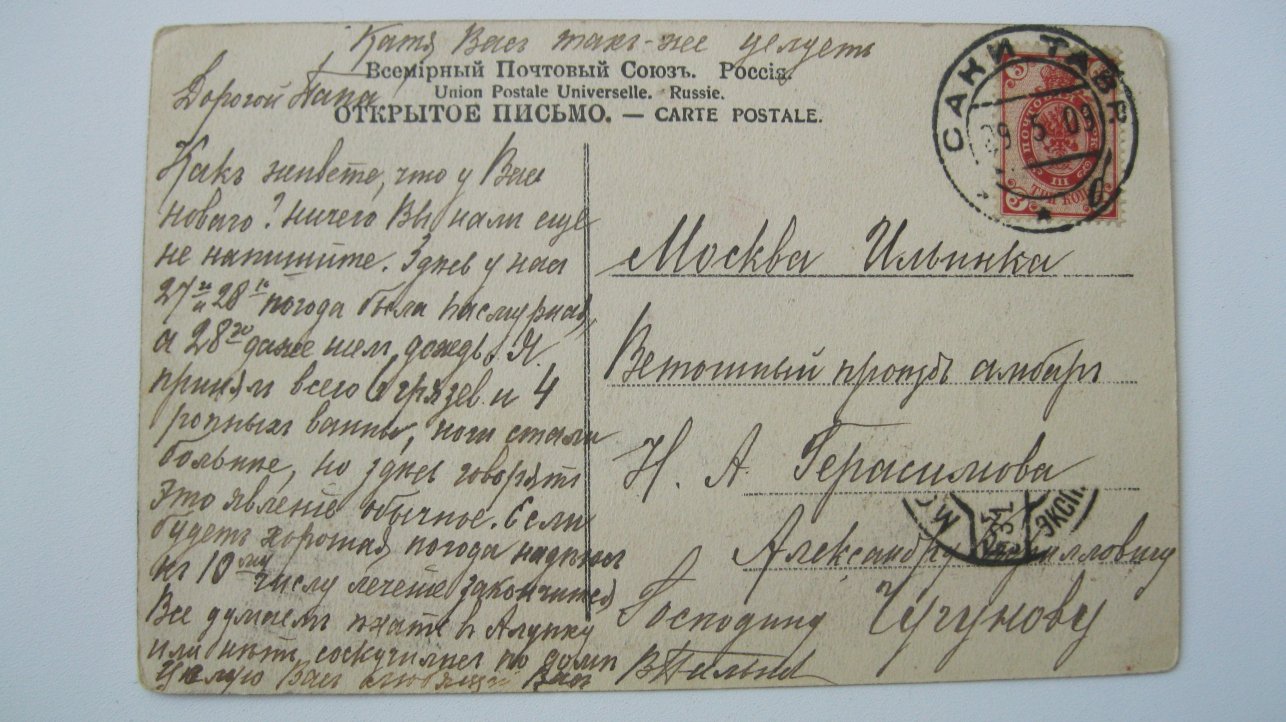 Катя Васъ такъ-же целуетъ
Всемірный Почтовый Союзъ. Россія.
Union Postale Universelle. Russie.
ОТКРЫТОЕ ПИСЬМО. — CARTE POSTALE.
САКИ ТАВР
29 5 09
б
ПОЧТОВАЯ МАРКА
III
ТРИ КОП
3 3
Дорогой Папа
Какъ живете, что у Васъ
новаго? ничего Вы намъ еще
не напишите. Здесь у насъ
27 и 28 го погода была пасмурная,
а 28 го даже шелъ дождь. Я
принялъ всего 6 грязев. и 4
ропныхъ ванны, ноги стали
больнее, но здесь говорятъ
это явленіе обычное. Если
будетъ хорошая погода надеюсь
къ 10 ому числу леченіе закончится
Все думаемъ ехать въ Алупку
или нетъ, соскучились по доме
Целую Васъ любящій Васъ
Москва Ильинка
Ветошный проездъ амбаръ
Н. А. Герасимова
МОС
ЭКСП.
Александру Кирилловичу
Господину Чугунову